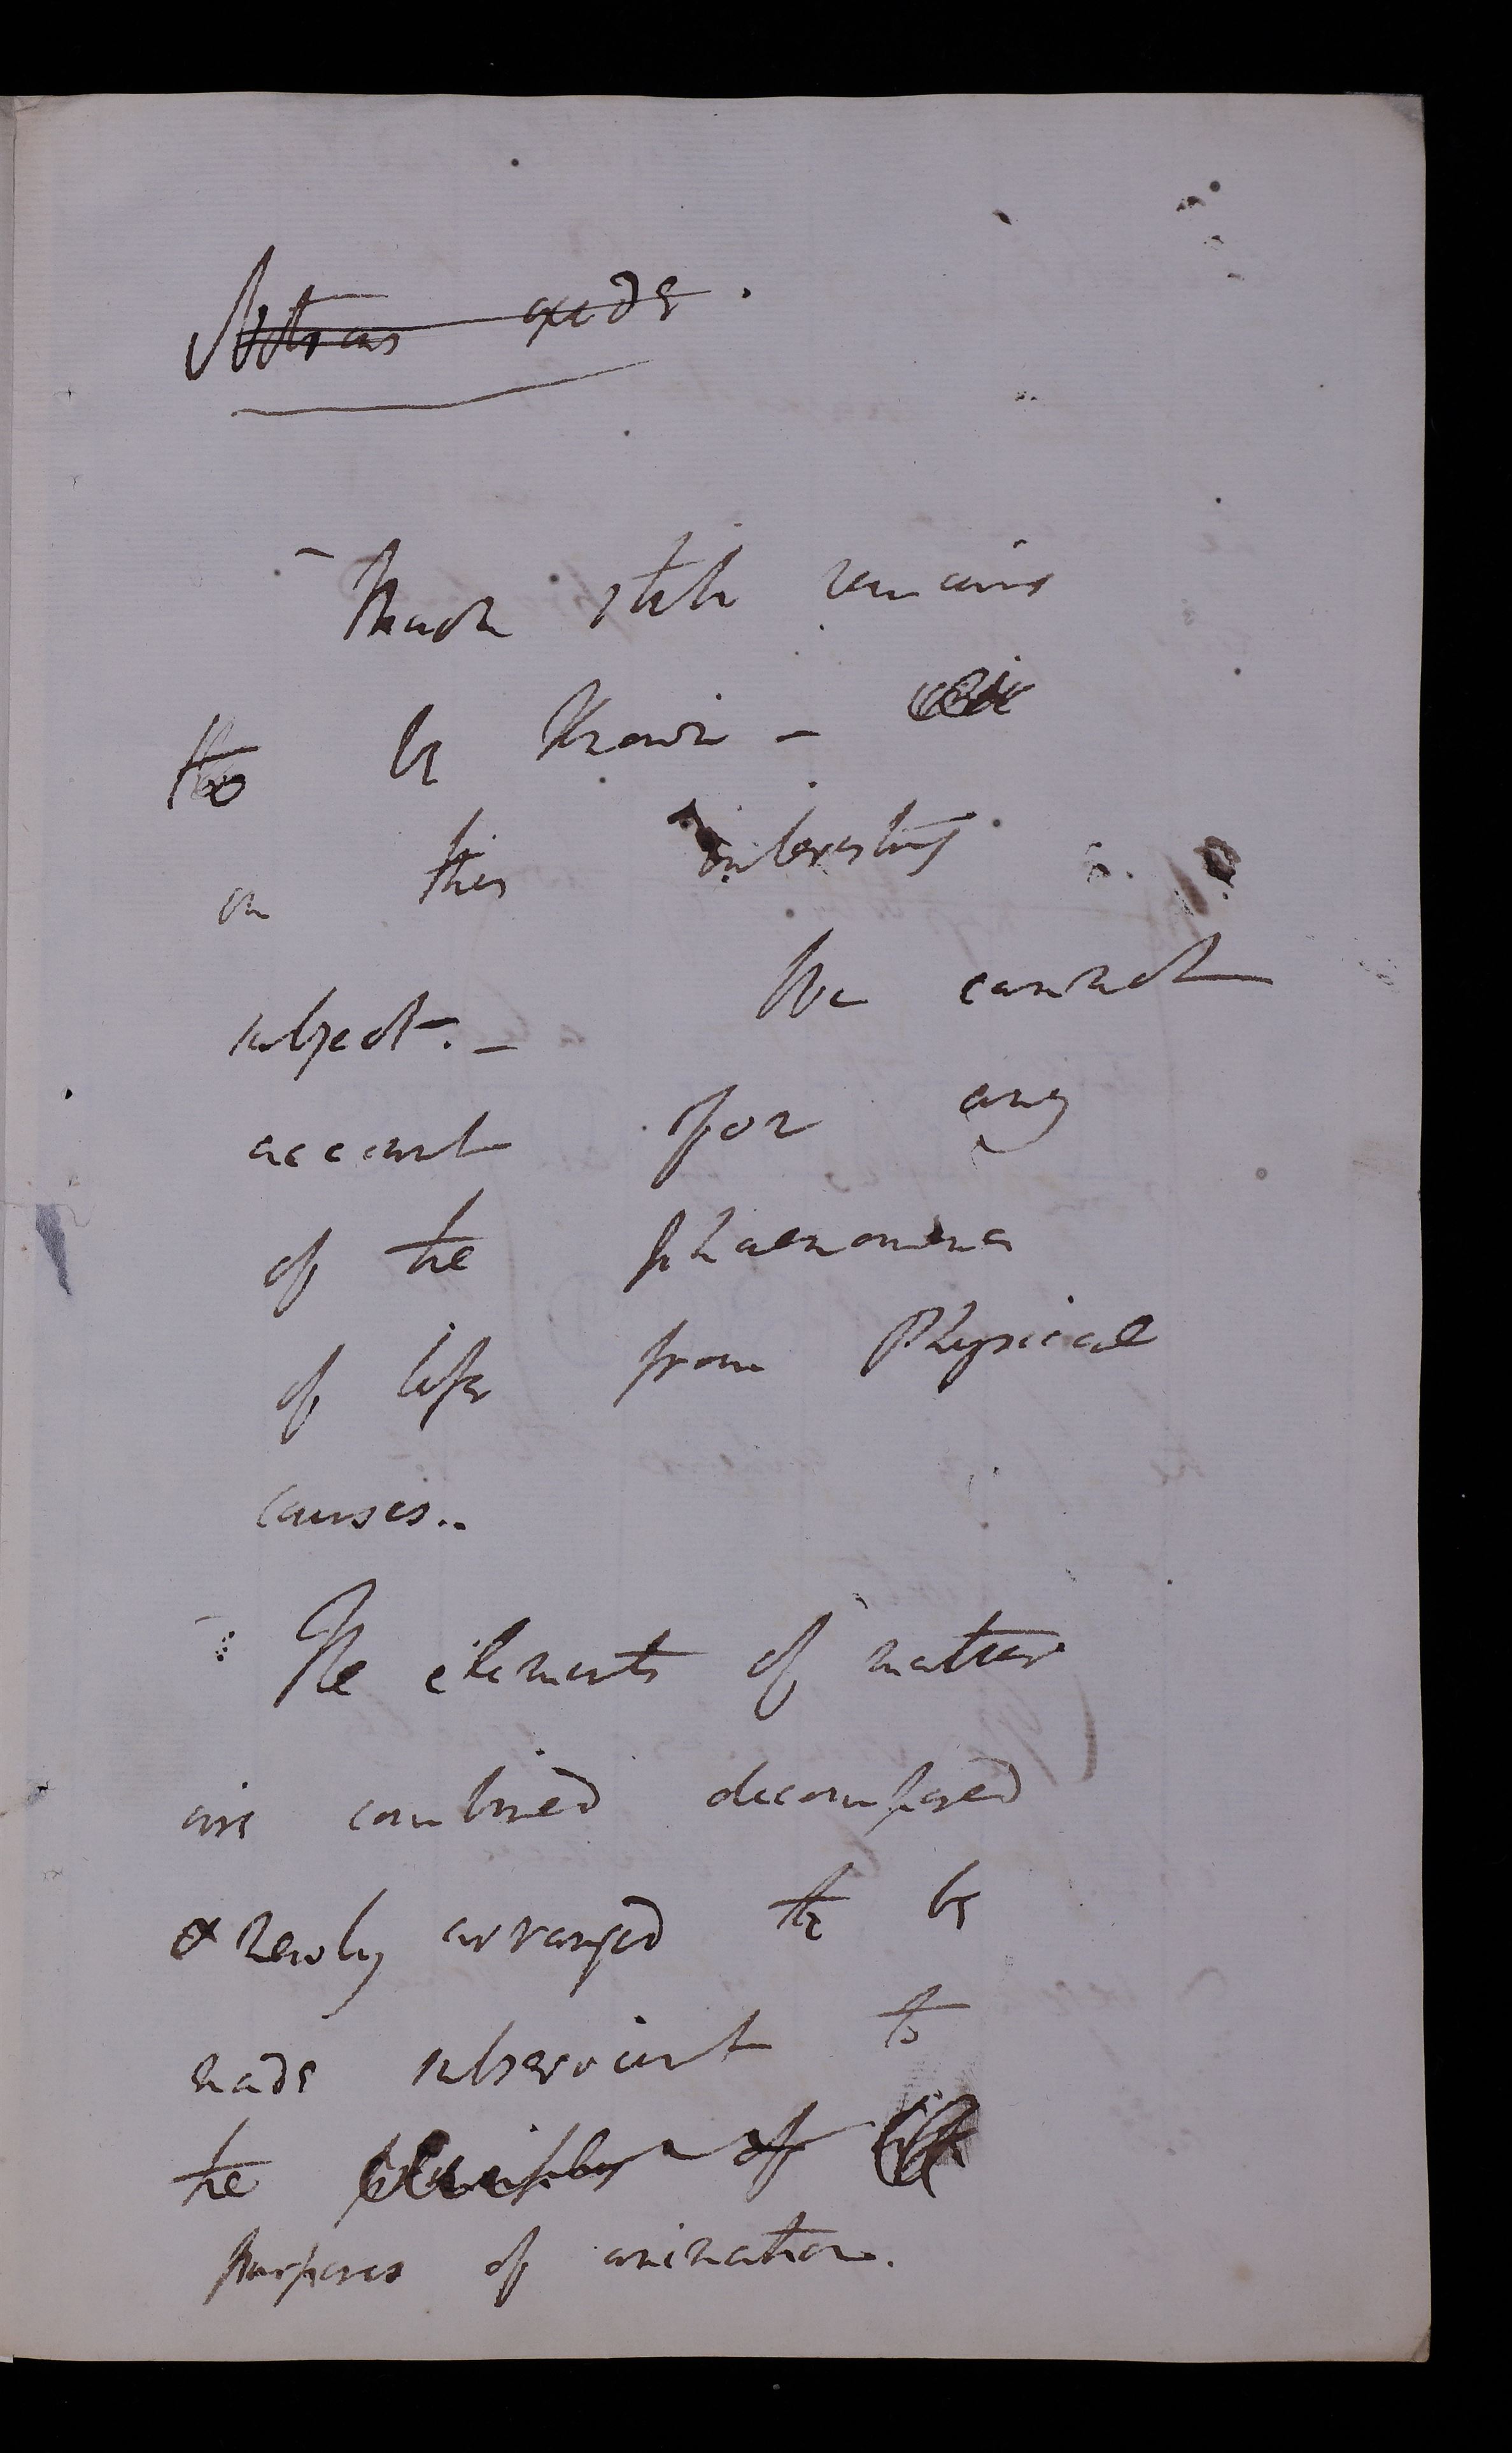 Nitrous oxide.
Much still remains
to be known -
on this interesting
subject. - We cannot
account for any
of the phaenomena
of life from Physical
causes..
The elements of matter
are combined decomposed
& newly arranged to be
made subservient to
the of
purposes of animation.